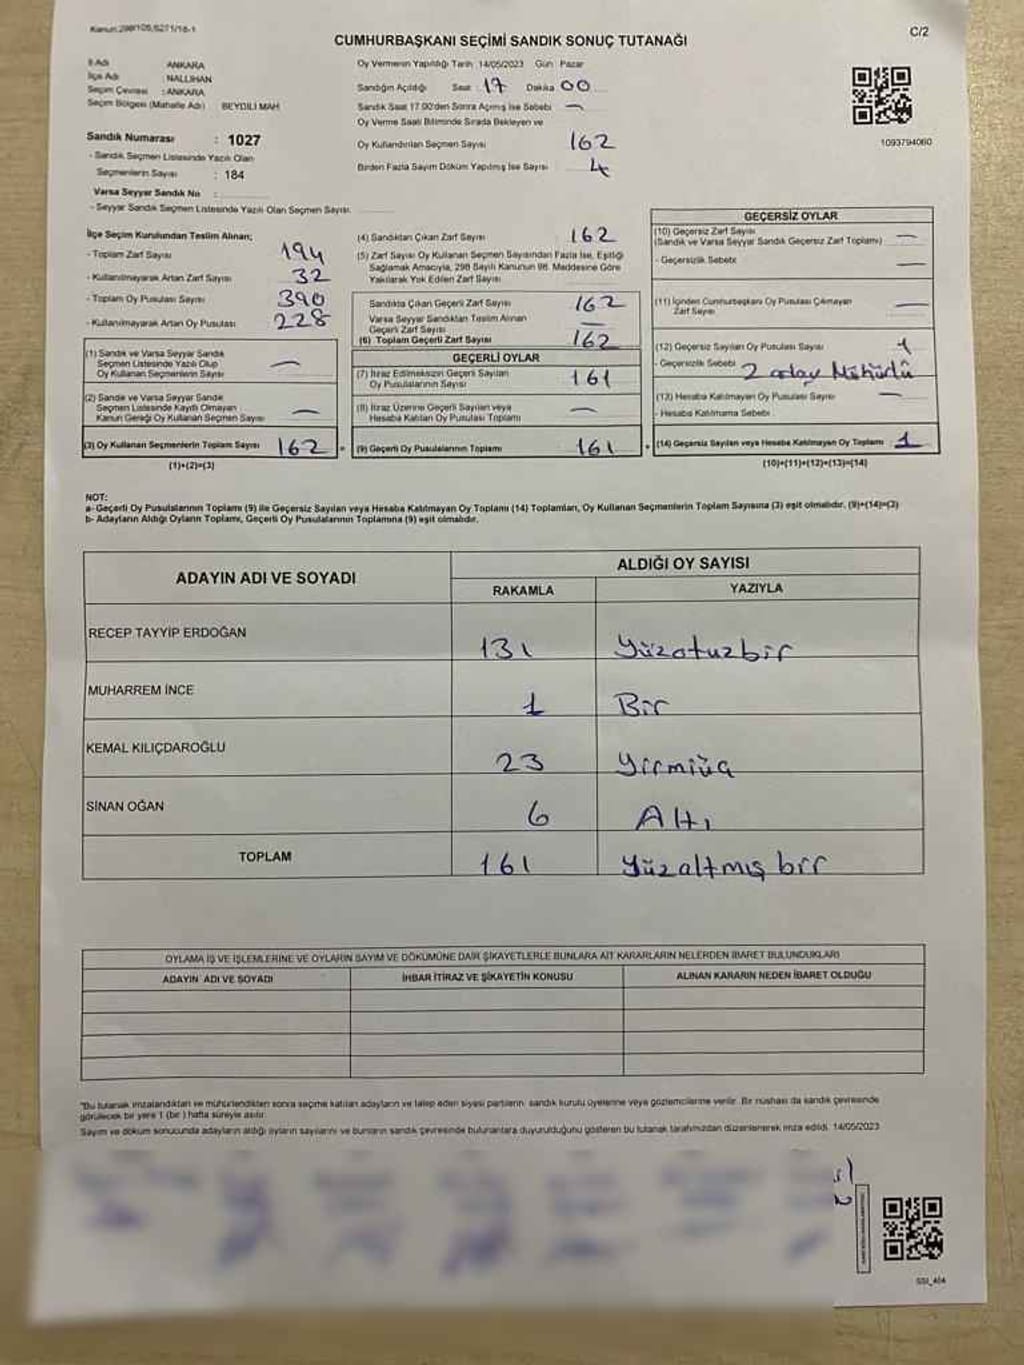 Kanun:298/105,6271/18-1
C/2
CUMHURBAŞKANI SEÇİMİ SANDIK SONUÇ TUTANAĞI
İl Adı ANKARA
İlçe Adı : NALLIHAN
Seçim Çevresi : ANKARA
Seçim Bölgesi (Mahalle Adı) BEYDİLİ MAH
Sandık Numarası : 1027
- Sandık Seçmen Listesinde Yazılı Olan
Seçmenlerin Sayısı : 184
Varsa Seyyar Sandık No :
- Seyyar Sandık Seçmen Listesinde Yazılı Olan Seçmen Sayısı.
Oy Vermenin Yapıldığı Tarih :14/05/2023 Gün : Pazar
Sandığın Açıldığı Saat : 17 Dakika 00
Sandık Saat 17.00'den Sonra Açılmış İse Sebebi —
Oy Verme Saati Bitiminde Sırada Bekleyen ve
Oy Kullandırılan Seçmen Sayısı 162
Birden Fazla Sayım Döküm Yapılmış İse Sayısı 4
1093794060
İlçe Seçim Kurulundan Teslim Alınan;
- Toplam Zarf Sayısı 194
- Kullanılmayarak Artan Zarf Sayısı 32
- Toplam Oy Pusulası Sayısı 390
- Kullanılmayarak Artan Oy Pusulası 228
(1) Sandık ve Varsa Seyyar Sandık
Seçmen Listesinde Yazılı Olup
Oy Kullanan Seçmenlerin Sayısı —
(2) Sandık ve Varsa Seyyar Sandık
Seçmen Listesinde Kayıtlı Olmayan
Kanun Gereği Oy Kullanan Seçmen Sayısı —
(3) Oy Kullanan Seçmenlerin Toplam Sayısı 162 =
(1)+(2)=(3)
(4) Sandıktan Çıkan Zarf Sayısı 162
(5) Zarf Sayısı Oy Kullanan Seçmen Sayısından Fazla İse, Eşitliği
Sağlamak Amacıyla, 298 Sayılı Kanunun 98. Maddesine Göre
Yakılarak Yok Edilen Zarf Sayısı
Sandıkta Çıkan Geçerli Zarf Sayısı 162
Varsa Seyyar Sandıktan Teslim Alınan
Geçerli Zarf Sayısı —
(6) Toplam Geçerli Zarf Sayısı 162
GEÇERLİ OYLAR
(7) İtiraz Edilmeksizin Geçerli Sayılan
Oy Pusulalarının Sayısı 161
(8) İtiraz Üzerine Geçerli Sayılan veya
Hesaba Katılan Oy Pusulaları Toplamı —
(9) Geçerli Oy Pusulalarının Toplamı 161 +
GEÇERSİZ OYLAR
(10) Geçersiz Zarf Sayısı —
(Sandık ve Varsa Seyyar Sandık Geçersiz Zarf Toplamı)
- Geçersizlik Sebebi —
(11) İçinden Cumhurbaşkanı Oy Pusulası Çıkmayan
Zarf Sayısı —
(12) Geçersiz Sayılan Oy Pusulası Sayısı 1
- Geçersizlik Sebebi 2 aday Mühürlü
(13) Hesaba Katılmayan Oy Pusulası Sayısı —
- Hesaba Katılmama Sebebi
(14) Geçersiz Sayılan veya Hesaba Katılmayan Oy Toplamı 1
(10)+(11)+(12)+(13)=(14)
NOT:
a- Geçerli Oy Pusulalarının Toplamı (9) ile Geçersiz Sayılan veya Hesaba Katılmayan Oy Toplamı (14) Toplamları, Oy Kullanan Seçmenlerin Toplam Sayısına (3) eşit olmalıdır. (9)+(14)=(3)
b- Adayların Aldığı Oyların Toplamı, Geçerli Oy Pusulalarının Toplamına (9) eşit olmalıdır.
ADAYIN ADI VE SOYADI ALDIĞI OY SAYISI
RAKAMLA YAZIYLA
RECEP TAYYİP ERDOĞAN 131 Yüzotuzbir
MUHARREM İNCE 1 Bir
KEMAL KILIÇDAROĞLU 23 Yirmiüç
SİNAN OĞAN 6 Altı
TOPLAM 161 Yüzaltmış bir
OYLAMA İŞ VE İŞLEMLERİNE VE OYLARIN SAYIM VE DÖKÜMÜNE DAİR ŞİKAYETLERLE BUNLARA AİT KARARLARIN NELERDEN İBARET BULUNDUKLARI
ADAYIN ADI VE SOYADI İHBAR İTİRAZ VE ŞİKAYETİN KONUSU ALINAN KARARIN NEDEN İBARET OLDUĞU
"Bu tutanak imzalandıktan ve mühürlendikten sonra seçime katılan adayların ve talep eden siyasi partilerin sandık kurulu üyelerine veya gözlemcilerine verilir. Bir nüshası da sandık çevresinde
görülecek bir yere 1 (bir) hafta süreyle asılır.
Sayım ve döküm sonucunda adayların aldığı oyların sayılarını ve bunların sandık çevresinde bulunanlara duyurulduğunu gösteren bu tutanak tarafımızdan düzenlenerek imza edildi. 14/05/2023
SSI_404